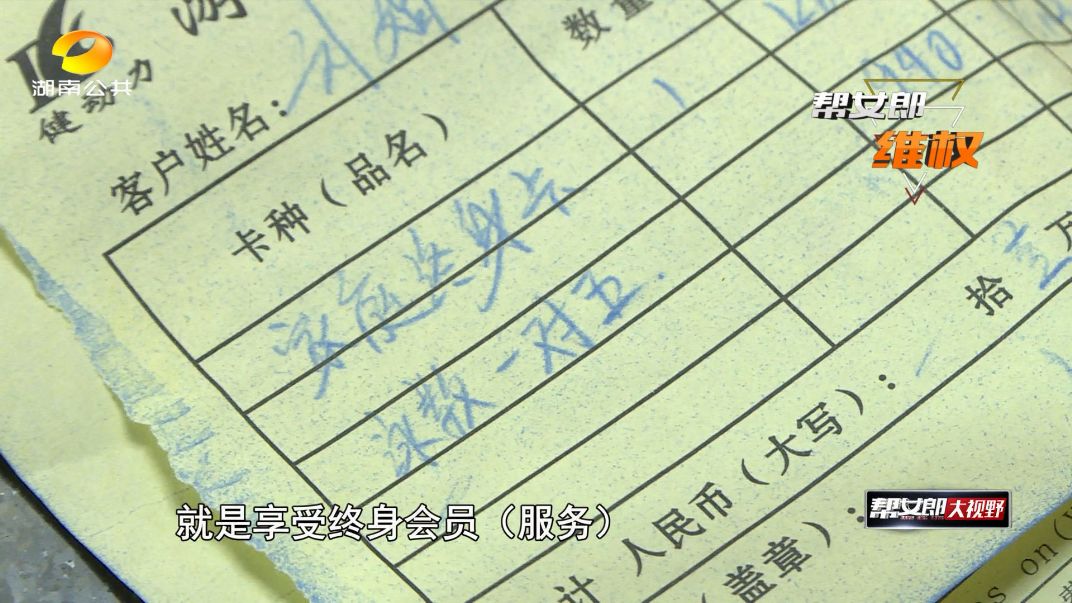 湖南公共
游
健动力
帮女郎
维权
客户姓名：刘
数量
卡种（品名）
1
家庭终身卡
泳教一对五.
拾
万
人民币（大写）：
计
（盖章）：
就是享受终身会员（服务）
帮女郎大视野